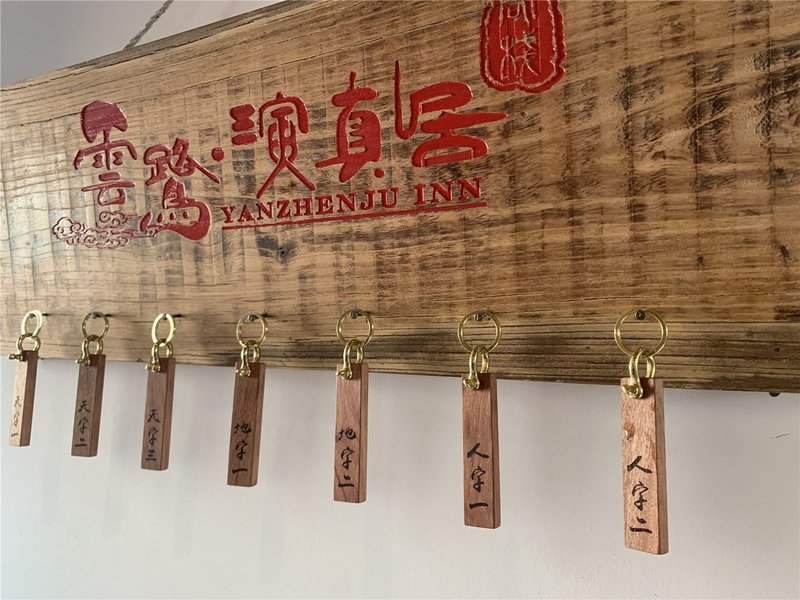 雲鷺·演真居
YANZHENJU INN
天字一
天字二
天字三
地字一
地字二
人字一
人字二